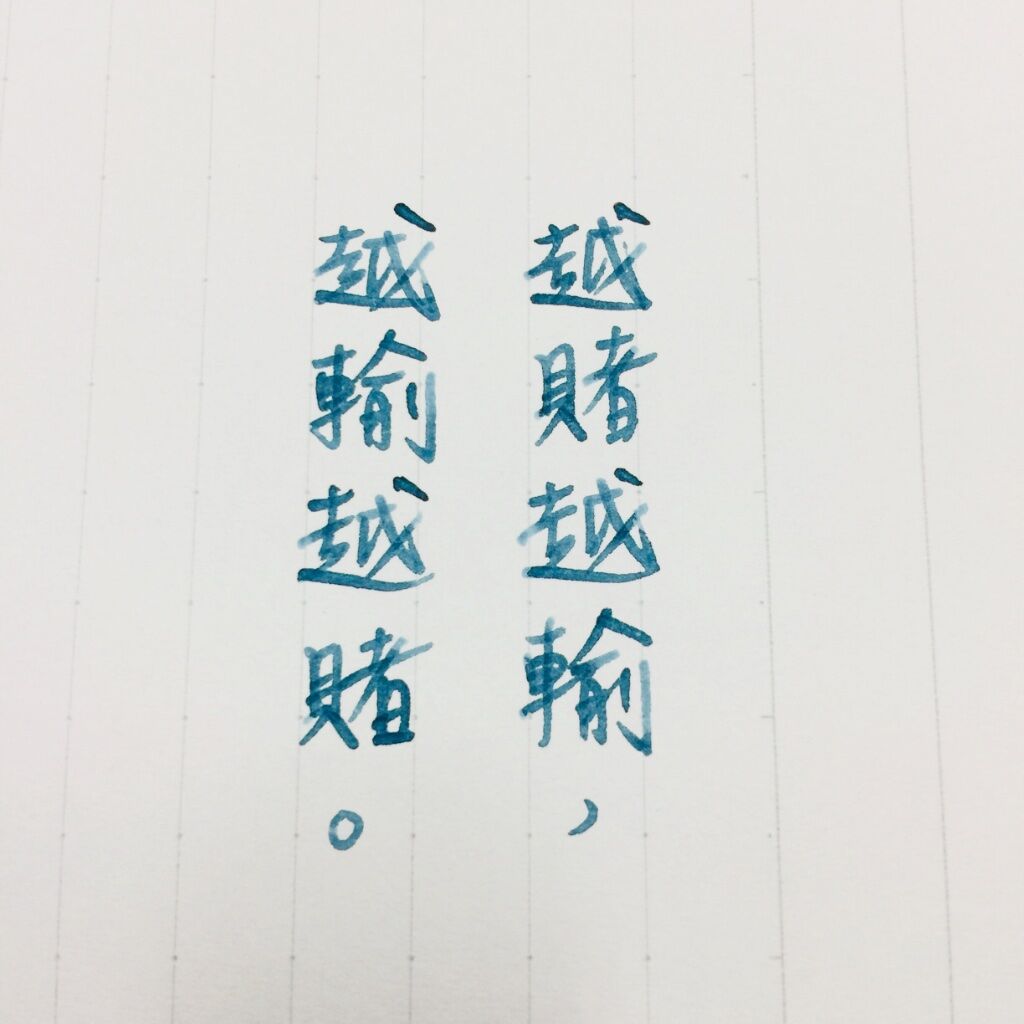 越賭越輸，
越輸越賭。